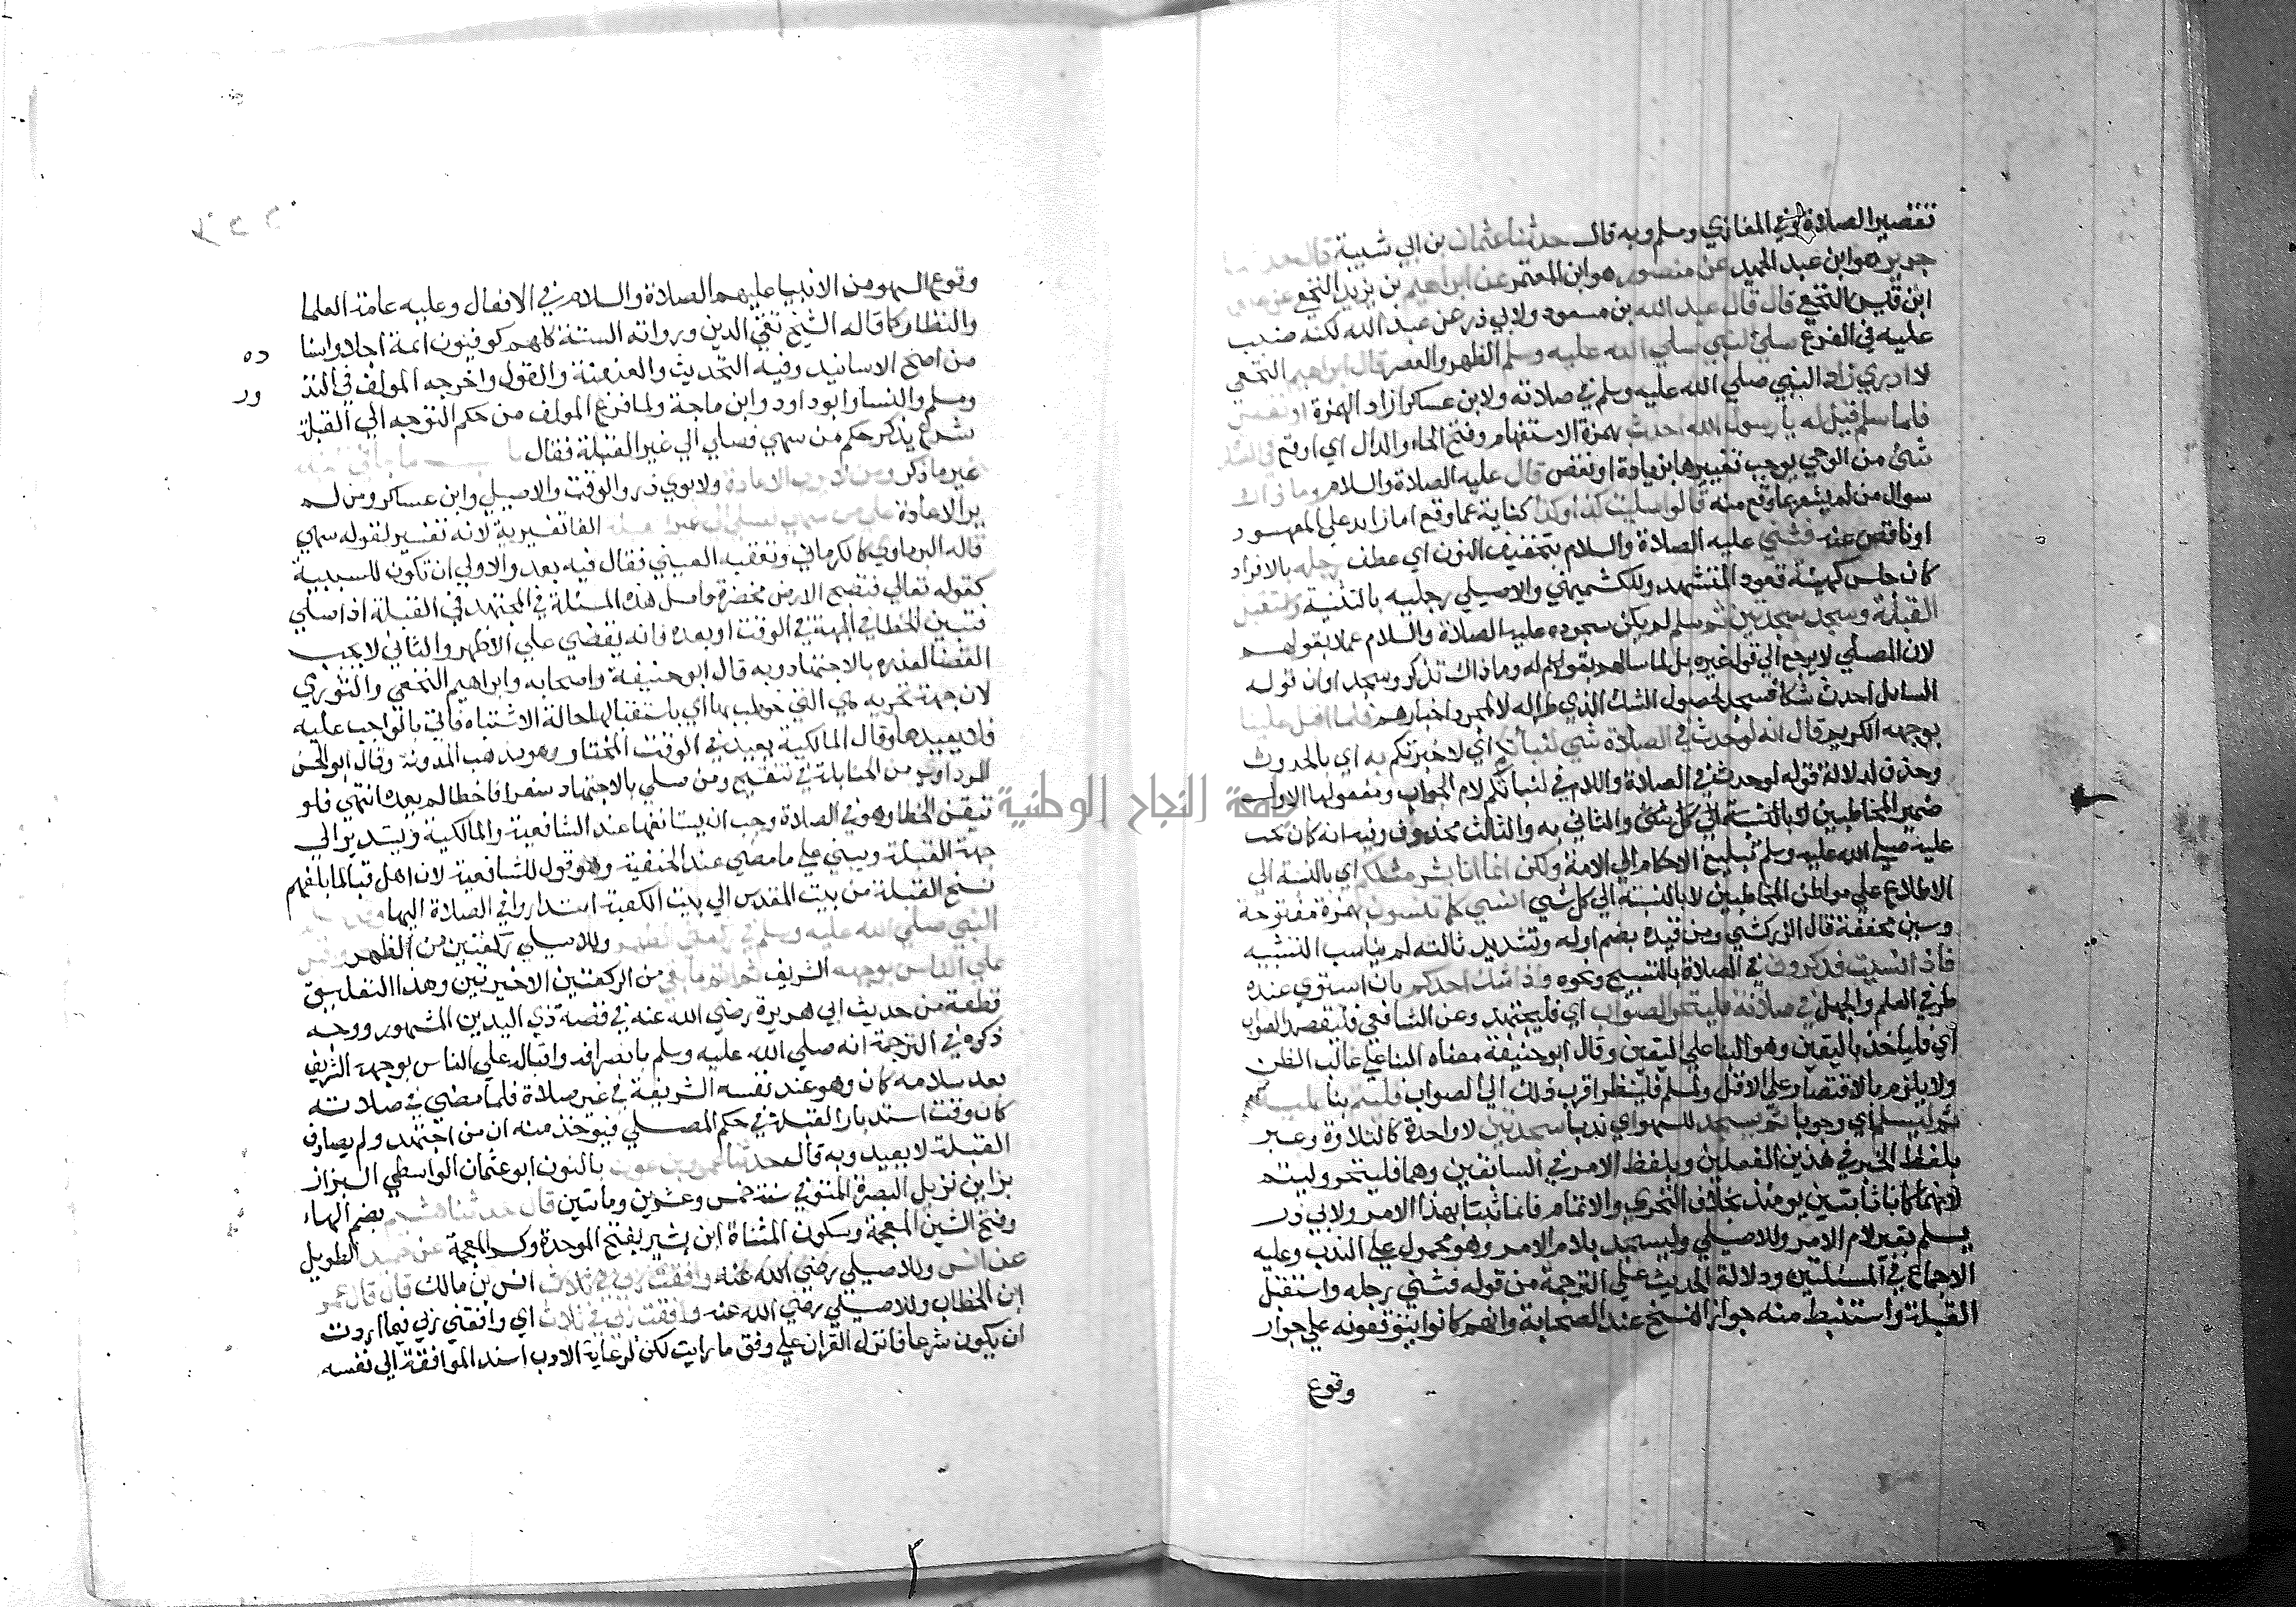 تقصير الصلاة وفي المغازي ومسلم وبه قال حدثنا عثمان بن ابي شيبة قال
جرير هو ابن عبد الحميد عن منصور هو ابن المعتمر عن ابراهيم بن يزيد النخعي عن
ابن قيس النخعي قال قال عبد الله بن مسعود ولابي ذر عن عبد الله لكنه ضبب
عليه في الفرع صلي النبي صلي الله عليه وسلم الظهر والعصر قال ابراهيم النخعي
لا ادري زاد النبي صلي الله عليه وسلم في صلاته ولابن عساكر ازاد بالهمزة او نقص
فلما سلم قيل له يا رسول الله احدث بهمزة الاستفهام وفتح الحاء والدال اي اوقع في
شئ من الوحي يوجب تغييرها بزيادة او نقص قال عليه الصلاة والسلام وما ذاك
سوال من لم يشعر بما وقع منه قالوا صليت كذا وكذا كناية عما وقع اما زايد علي المعهود
او ناقص عنه فثني عليه الصلاة والسلام بتخفيف النون اي عطف رجله بالافراد
كان جلس كهيئة قعود المتشهد وللكشميهني والاصيلي رجليه بالتثنية واستقبل
القبلة وسجد سجدتين ثم سلم لم يكن سجوده عليه الصلاة والسلام عملا بقولهم
لان المصلي لا يرجع الي قول غيره بل لما سالهم بقوله وما ذاك تذكر وسجد او ان قول
السايل احدث شكا فسجد لحصول الشك الذي طرا له لا لمجرد اخبارهم فلما اقبل علينا
بوجهه الكريم قال انه لو حدث في الصلاة شي لنباتكم اي لاخبرتكم به اي بالحدوث
وحذف لدلالة قوله لو حدث في الصلاة واللام في لنباتكم لام الجواب ومفعولها الاول
ضمير المخاطبين والثاني به والثالث محذوف وفيه انه كان يجب
عليه صلي الله عليه وسلم تبليغ الاحكام الي الامة ولكن انما انا بشر مثلكم اي بالنسبة الي
الاطلاع علي مواطن المخاطبين لا بالنسبة الي كل شي انسي كما تنسون بهمزة مفتوحة
وسين مخففة قال الزركشي ومن قيده بضم اوله وتشديد ثالثه لم يناسب التشبيه
فاذا نسيت فذكروني في الصلاة بالتسبيح ونحوه واذا شك احدكم بان استوي عنده
طرفي العلم والجهل في صلاته فليتحر الصواب اي فليجتهد وعن الشافعي فليقصد الصواب
اي فلياخذ باليقين وهو البنا علي اليقين وقال ابو حنيفة معناه البنا علي غالب الظن
ولا يلزم بالاقتصار علي الاقل ولمسلم فلينظر اقرب ذلك الي الصواب فليتم بنا عليه
ثم ليسلم اي وجوبا ثم يسجد للسهو اي ندبا سجدتين لا واحدة كالتلاوة وعبر
بلفظ الخبر في هذين الفعلين وبلفظ الامر في السابقين وهما فليتحر وليتم
لانهما كانا ثابتين يومئذ بخلاف التحري والاتمام فانما ثبتا بهذا الامر ولابي ذر
يسلم بغير لام الامر وللاصيلي وليسجد بلام الامر وهو محمول علي الندب وعليه
الاجماع في المسئلتين ودلالة الحديث علي الترجمة من قوله فثني رجله واستقبل
القبلة واستنبط منه جواز النسخ عند الصحابة وانهم كانوا يتوقعونه علي جواز
وقوع
وقوع السهو من الانبيا عليهم الصلاة والسلام في الافعال وعليه عامة العلما
والنظار كما قاله الشيخ تقي الدين ورواته الستة كلهم كوفيون ائمة اجلا واسنا
ده
من اصح الاسانيد وفيه التحديث والعنعنة والقول واخرجه المولف في النذ
ور
ومسلم والنسا وابو داود وابن ماجة ولما فرغ المولف من حكم التوجه الي القبلة
شرع يذكر حكم من سهي فصلي الي غير القبلة فقال
غير ما ذكر ومن لا يري الاعادة ولابوي ذر والوقت والاصيلي وابن عساكر ومن لم
ير الاعادة الفا تفسيرية لانه تفسير لقوله سهي
قاله البرماوي كالكرماني وتعقبه العيني فقال فيه بعد والاولي ان تكون للسببية
كقوله تعالي فتصبح الارض مخضرة واصل هذه المسئلة في المجتهد في القبلة اذا صلي
فتبين الخطا في الجهة في الوقت او بعده فانه يقضي علي الاظهر والثاني لا يجب
القضا لعذره بالاجتهاد وبه قال ابو حنيفة واصحابه وابراهيم النخعي والثوري
لان جهة تحريه هي التي خوطب بها اي باستقبالها حالة الاشتباه فاتي بالواجب عليه
فلا يعيدها وقال المالكية يعيد في الوقت المختار وهو مذهب المدونة وقال ابو الحسن
المرداوي من الحنابلة في تنقيح ومن صلي بالاجتهاد سفرا فاخطا لم يعد انتهي فلو
تيقن الخطا وهو في الصلاة وجب ان يستانفها عند الشافعية والمالكية ويستدير الي
جهة القبلة ويبني علي ما مضي عند الحنفية وهو قول للشافعية لان اهل قبا لما بلغهم
نسخ القبلة من بيت المقدس الي بيت الكعبة استداروا في الصلاة اليها
النبي صلي الله عليه وسلم في ركعتي الظهر وللاصيلي ركعتين من الظهر
علي الناس بوجهه الشريف ثم اتم ما بقي من الركعتين الاخيرتين وهذا التعليق
قطعة من حديث ابي هريرة رضي الله عنه في قصة ذي اليدين المشهور ووجه
ذكره في الترجمة انه صلي الله عليه وسلم بانصرافه واقباله علي الناس بوجهه الشريف
بعد سلامه كان وهو عند نفسه الشريفة في غير صلاة فلما مضي في صلاته
كان وقت استدبار القبلة في حكم المصلي فيوخذ منه ان من اجتهد ولم يصادف
القبلة لا يعيد وبه قال حدثنا عمرو بن عون بالنون ابو عثمان الواسطي البزاز
نزيل البصرة المتوفي سنة خمس وعشرين ومايتين قال حدثنا هشيم بضم الهاء
وفتح الشين المعجمة وسكون المثناة ابن بشير بفتح الموحدة وكسر المعجمة عن حميد الطويل
عن انس وللاصيلي رضي الله عنه وافقت ربي في ثلاث انس بن مالك قال قال عمر
ابن الخطاب وللاصيلي رضي الله عنه وافقت ربي في ثلاث اي وافقني ربي فيما اردت
ان يكون شرعا فانزل القران علي وفق ما رايت لكن لرعاية الادب اسند الموافقة الي نفسه
جامعة النجاح الوطنية